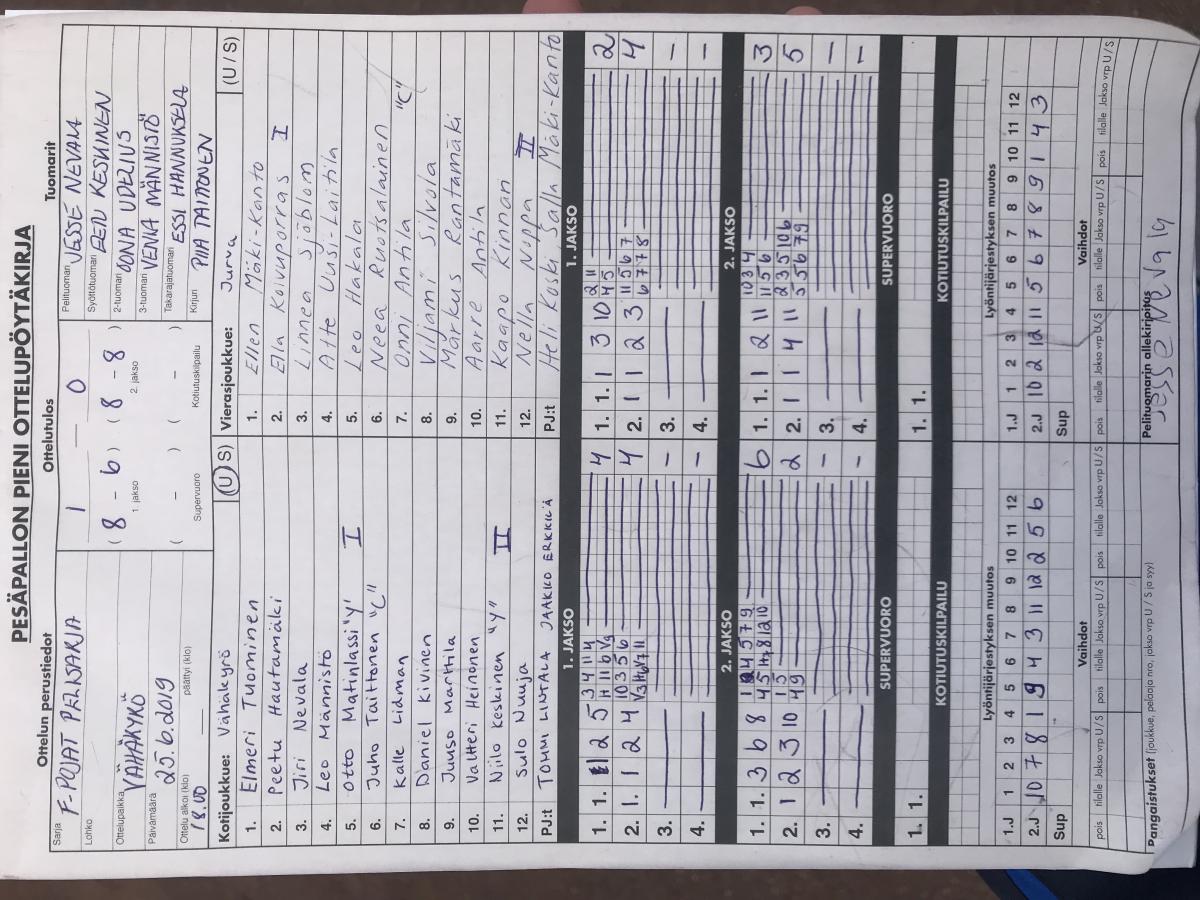 PESÄPALLON PIENI OTTELUPÖYTÄKIRJA
Ottelun perustiedot
Sarja F-POJAT PELISARJA
Lohko
Ottelupaikka VÄHÄKYRÖ
Päivämäärä 25.6.2019
Ottelu alkoi (klo) 18.00 päättyi (klo)
Ottelutulos
1 — 0
( 8 - 6 ) ( 8 - 8 )
1. jakso 2. jakso
( - ) ( - )
Supervuoro Kotiutuskilpailu
Tuomarit
Pelituomari JESSE NEVALA
Syöttötuomari EEMU KESKINEN
2-tuomari OONA UDELIUS
3-tuomari VENLA MÄNNISTÖ
Takarajatuomari ESSI HANNUKSELA
Kirjuri PIIA TAITTONEN
Kotijoukkue: Vähäkyrö (U / S)
1. Elmeri Tuominen
2. Peetu Hautamäki
3. Jiri Nevala
4. Leo Männistö
5. Otto Matinlassi "Y" I
6. Juho Taittonen "C"
7. Kalle Lidman
8. Daniel Kivinen
9. Juuso Marttila
10. Valtteri Heinonen
11. Niilo Keskinen "Y" II
12. Sulo Nuuja
PJ:t TOMMI LINTALA JAAKKO ERKKILÄ
Vierasjoukkue: Jurva (U / S)
1. Ellen Mäki-Kanto
2. Ella Koivuporras I
3. Linnea Sjöblom
4. Atte Uusi-Laitila
5. Leo Hakala
6. Neea Ruotsalainen
7. Onni Anttila "C"
8. Viljami Silvola
9. Markus Rantamäki
10. Aarre Antila
11. Kaapo Kinnari
12. Nella Noppa II
PJ:t Heli Koski Salla Mäki-Kanto
1. JAKSO
1. 1. 1 2 5 4
2. 1. 1 2 4 4
3. -
4. -
1. JAKSO
1. 1. 1 3 10 2
2. 1 1 2 3 4
3. -
4. -
2. JAKSO
1. 1. 3 6 8 6
2. 1 2 3 10 2
3. -
4. -
2. JAKSO
1. 1. 1 2 11 3
2. 1 1 4 11 5
3. -
4. -
SUPERVUORO
1. 1.
SUPERVUORO
1. 1.
KOTIUTUSKILPAILU
KOTIUTUSKILPAILU
Lyöntijärjestyksen muutos
1.J 1 2 3 4 5 6 7 8 9 10 11 12
2.J 10 7 8 1 9 4 3 11 12 2 5 6
Sup
Lyöntijärjestyksen muutos
1.J 1 2 3 4 5 6 7 8 9 10 11 12
2.J 10 2 12 11 5 6 7 8 9 1 4 3
Sup
Vaihdot
pois tilalle Jakso vrp U / S pois tilalle Jakso vrp U / S pois tilalle Jakso vrp U / S
Vaihdot
pois tilalle Jakso vrp U / S pois tilalle Jakso vrp U / S pois tilalle Jakso vrp U / S
Pangaistukset (joukkue, pelaaja nro, jakso vrp U / S ja syy)
Pelituomarin allekirjoitus
Jesse Nevala